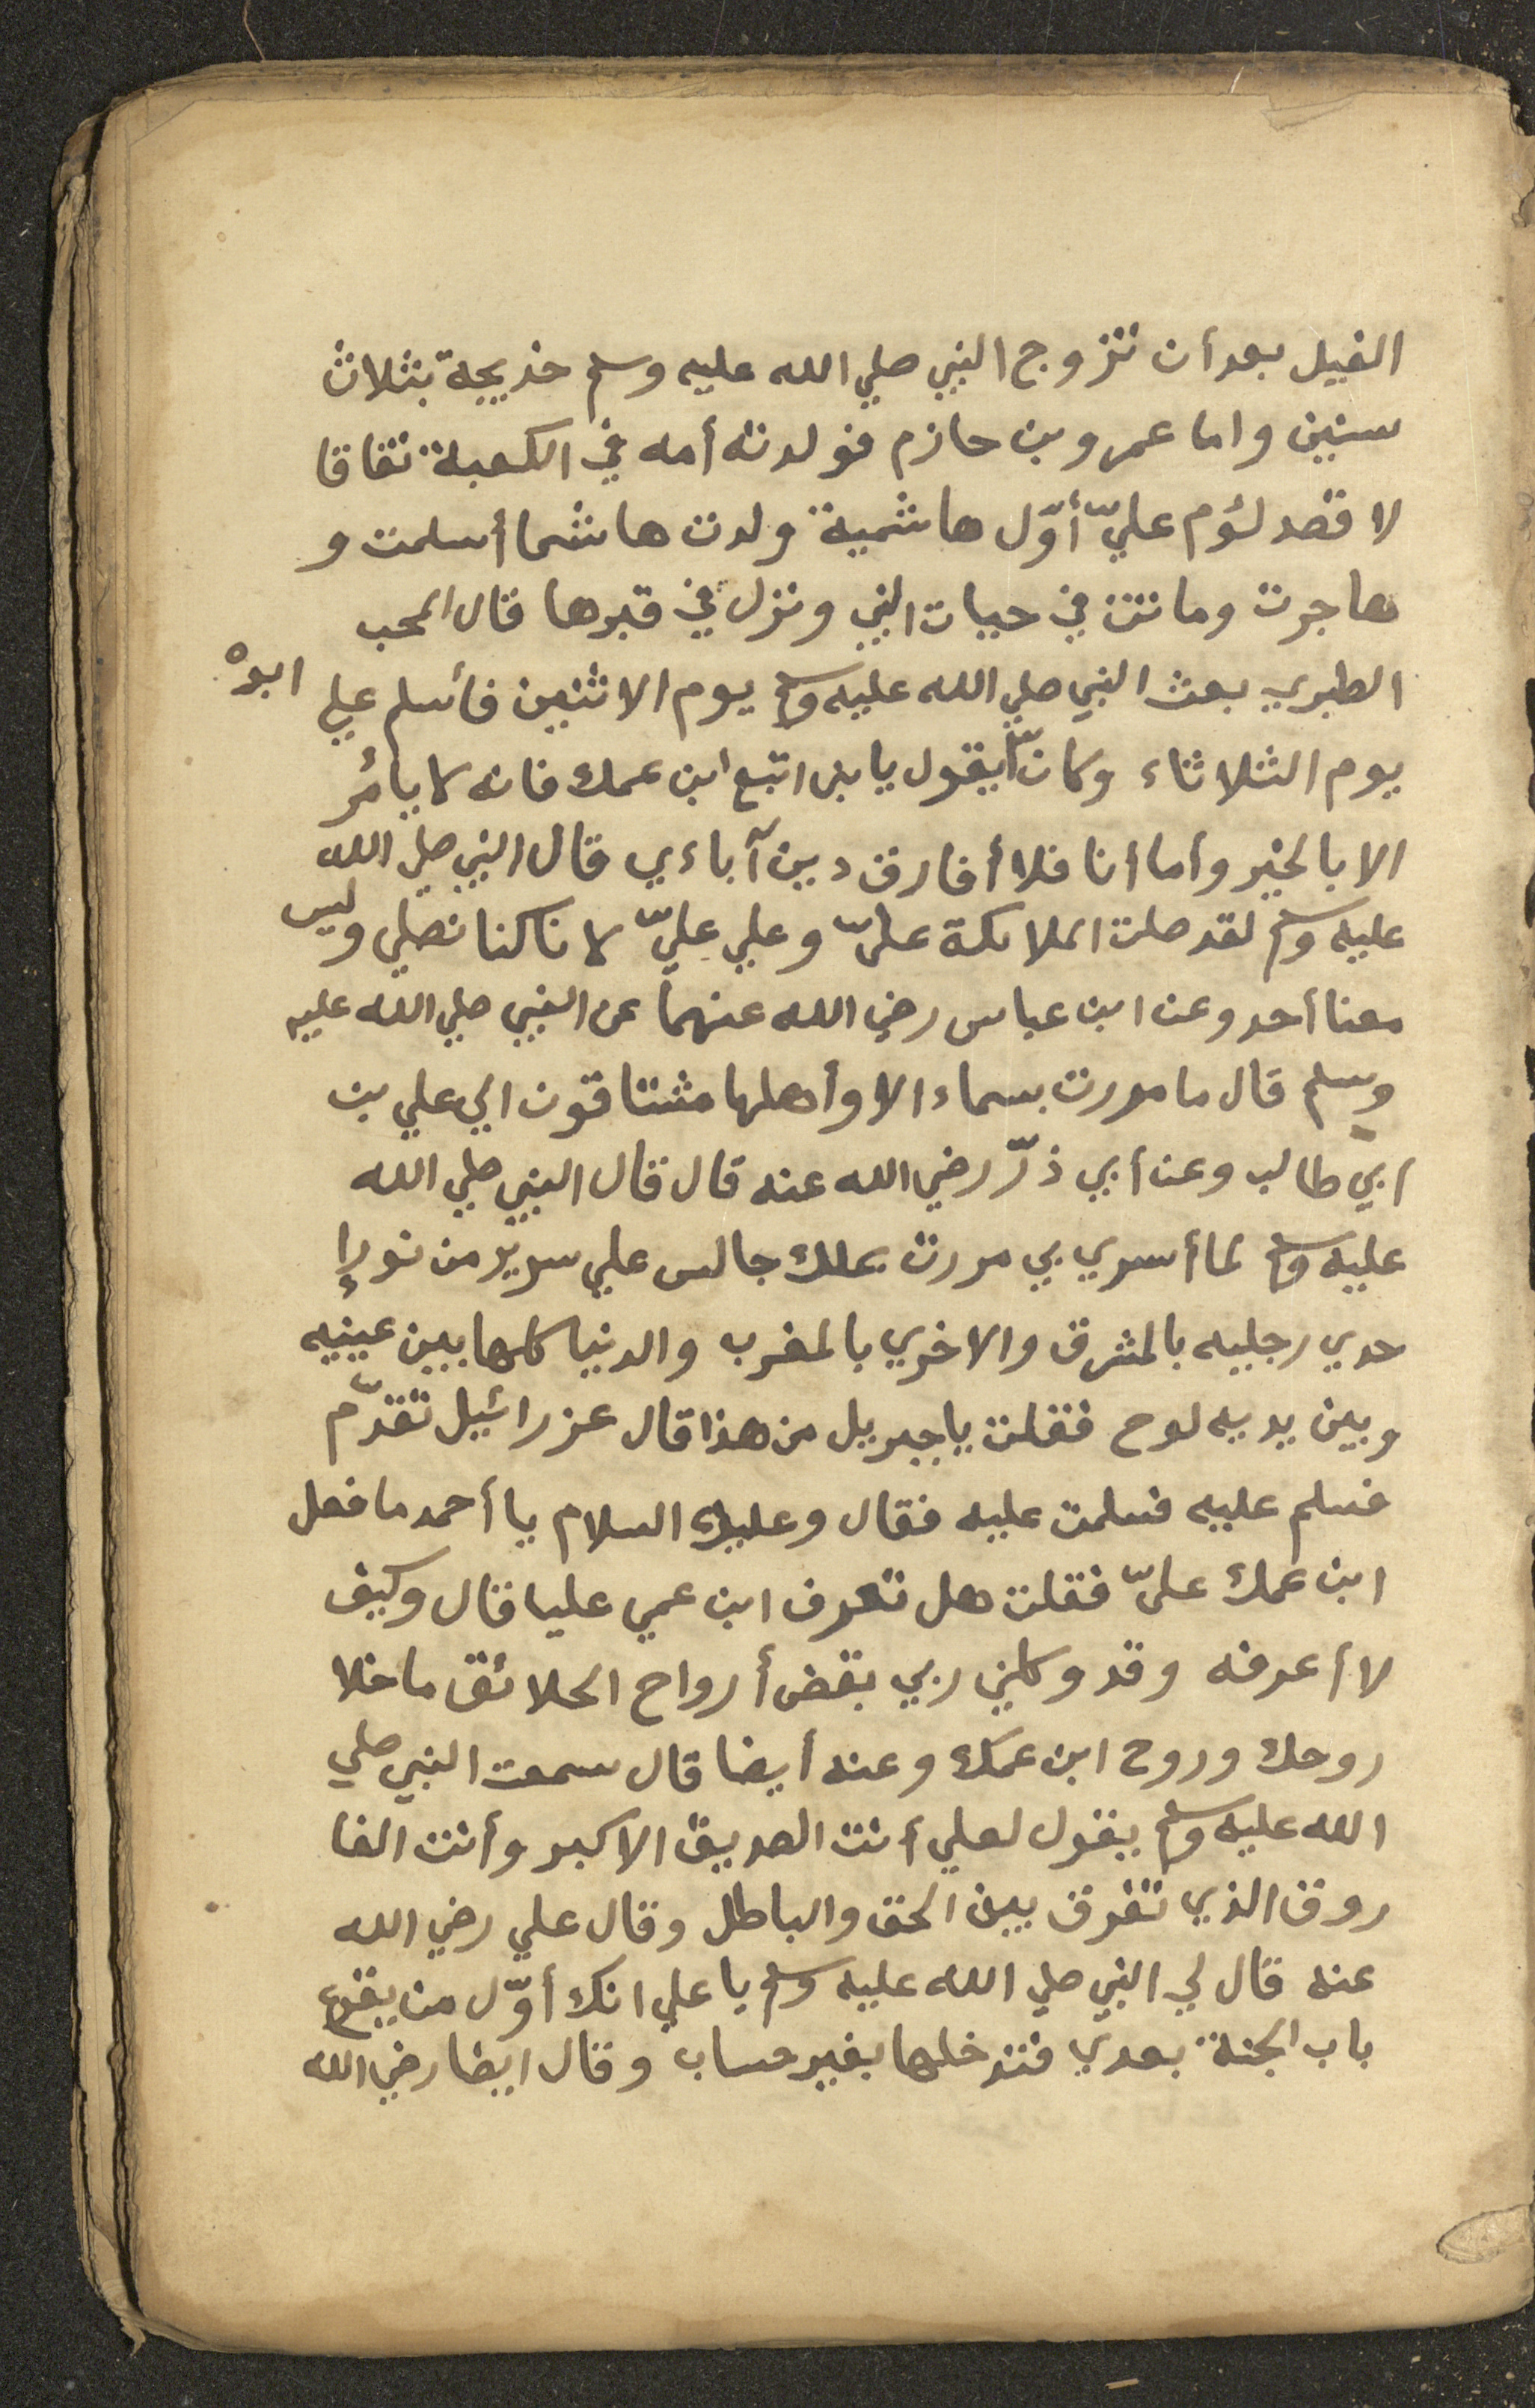 الفيل بعد أن تزوج النبي صلي الله عليه وسلم خديجة بثلاث
سنين واما عمرو بن حازم فولدته أمه في الكعبة تفاقا
لا قصد لئوم عليّ أوّل هاشمية ولدت هاشما أسلمت و
هاجرت وماتت في حيات النبي ونزل في قبرها قال المحب
الطبري بعث النبي صلي الله عليه وسلم يوم الاثنين فأسلم علي
ابوه
يوم الثلاثاء وكان يقول يابني اتبع ابن عمك فانه لا يأمر
الا بالخير وأما أنا فلا أفارق دين آباءي قال النبي صلي الله
عليه وسلم لقد صلت الملائكة عليّ وعلي عليّ لانا كنا نصلي وليس
معنا أحد وعن ابن عباس رضي الله عنهما عن النبي صلي الله عليه
وسلم قال ما مررت بسماء الا وأهلها مشتاقون الي علي بن
ابي طالب وعن أبي ذرّ رضي الله عنه قال قال النبي صلي الله
عليه وسلم لما أسري بي مررت بملك جالس علي سرير من نور إ
حدي رجليه بالمشرق والاخري بالمغرب والدنيا كلها بين عينيه
وبين يديه لوح فقلت ياجبريل من هذا قال عزرائيل تقدّم
فسلم عليه فسلمت عليه فقال وعليك السلام يا أحمد ما فعل
ابن عمك عليّ فقلت هل تعرف ابن عمي عليا قال وكيف
لا أعرفه وقد وكلني ربي بقض أرواح الخلائق ما خلا
روحك وروح ابن عمك وعنه أيضا قال سمعت النبي صلي
الله عليه وسلم يقول لعلي أنت الصديق الاكبر وأنت الفا
روق الذي تفرق بين الحق والباطل وقال علي رضي الله
عنه قال لي النبي صلي الله عليه وسلم يا علي انك أوّل من يقرع
باب الجنة بعدي فتدخلها بغير حساب وقال ايضا رضي الله